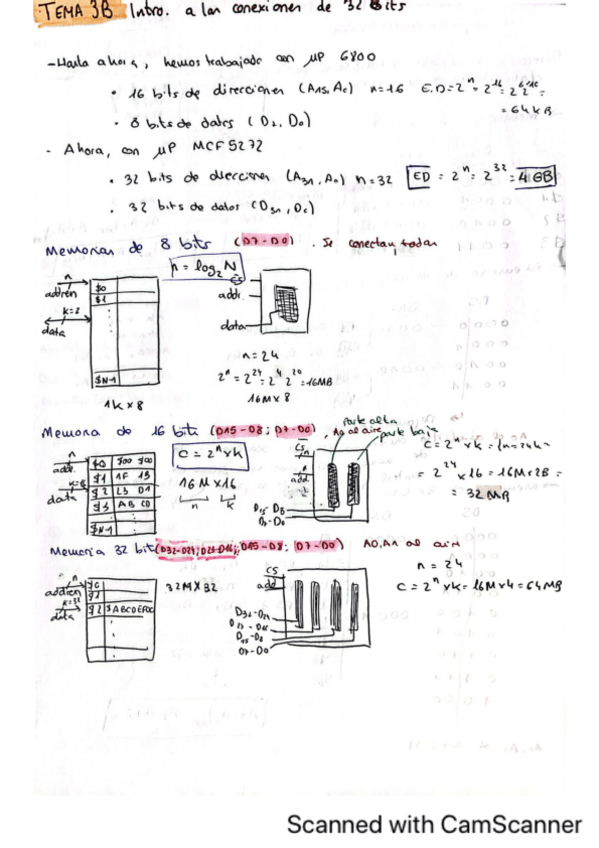 TEMA 3B Intro. a las conexiones de 32 Bits
- Hasta ahora, hemos trabajado con µP 6800
• 16 bits de direcciones (A15, A0) n=16 E.D=2^n = 2^16 = 2^6 2^10
= 64 kB
• 8 bits de datos (D7, D0)
- Ahora, con µP MCF5272
• 32 bits de direcciones (A31, A0) n=32 ED = 2^n = 2^32 = 4 GB
• 32 bits de datos (D31, D0)
Memorias de 8 bits (D7-D0). Se conectan todas
n = log2 N
n
addren
k=8
data
$0
$1
$N-1
1k x 8
CS
addr.
data
n = 24
2^n = 2^24 = 2^4 2^20 = 16MB
16M x 8
Memoria de 16 bits (D15-D8; D7-D0), A0 al aire
Parte alta
parte baja
C = 2^n x k
n
addr.
data
$0
$1 1F 13
$2 L3 D1
$3 AB CD
$N-1
16 M x 16
n k
CS
add
D15 D8
D7-D0
= 2^24 x 16 = 16M x 2B =
= 32 MB
Memoria 32 bit (D32-D24; D23-D16; D15-D8; D7-D0) A0, A1 al aire
n
addren
k=32
data
$0
$1
$2
32M X 32
CS
add
D32-D24
D23-D16
D15-D8
D7-D0
n = 24
C = 2^n x k = 16M x 4 = 64 MB
Scanned with CamScanner